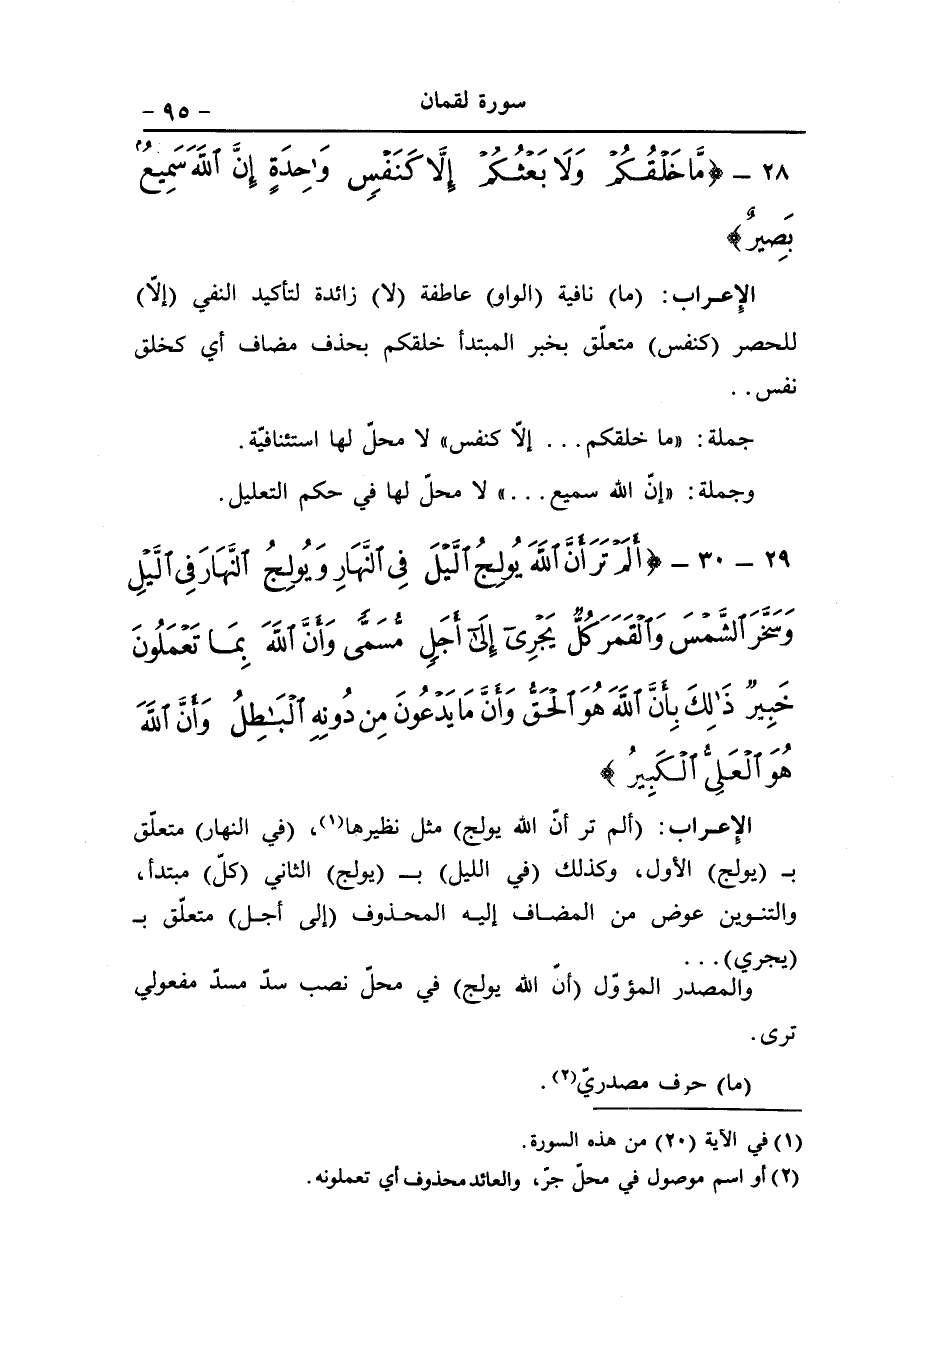 سورة لقمان
- ٩٥ -
٢٨ - ﴿مَّا خَلْقُكُمْ وَلَا بَعْثُكُمْ إِلَّا كَنَفْسٍ وَٰحِدَةٍ إِنَّ ٱللَّهَ سَمِيعٌۢ
بَصِيرٌ﴾
الإعـراب: (ما) نافية (الواو) عاطفة (لا) زائدة لتأكيد النفي (إلّا)
للحصر (كنفس) متعلّق بخبر المبتدأ خلقكم بحذف مضاف أي كخلق
نفس..
جملة: «ما خلقكم... إلّا كنفس» لا محلّ لها استئنافيّة.
وجملة: «إنّ الله سميع...» لا محلّ لها في حكم التعليل.
٢٩ - ٣٠ - ﴿أَلَمْ تَرَ أَنَّ ٱللَّهَ يُولِجُ ٱلَّيْلَ فِى ٱلنَّهَارِ وَيُولِجُ ٱلنَّهَارَ فِى ٱلَّيْلِ
وَسَخَّرَ ٱلشَّمْسَ وَٱلْقَمَرَ كُلٌّ يَجْرِىٓ إِلَىٰٓ أَجَلٍ مُّسَمًّى وَأَنَّ ٱللَّهَ بِمَا تَعْمَلُونَ
خَبِيرٌ ذَٰلِكَ بِأَنَّ ٱللَّهَ هُوَ ٱلْحَقُّ وَأَنَّ مَا يَدْعُونَ مِن دُونِهِ ٱلْبَـٰطِلُ وَأَنَّ ٱللَّهَ
هُوَ ٱلْعَلِىُّ ٱلْكَبِيرُ﴾
الإعـراب: (ألم تر أنّ الله يولج) مثل نظيرها(١)، (في النهار) متعلّق
بـ (يولج) الأول، وكذلك (في الليل) بـ (يولج) الثاني (كلّ) مبتدأ،
والتنـوين عوض من المضـاف إليـه المحـذوف (إلى أجـل) متعلّق بـ
(يجري)...
والمصدر المؤوّل (أنّ الله يولج) في محلّ نصب سدّ مسدّ مفعولي
ترى.
(ما) حرف مصدريّ(٢).
(١) في الآية (٢٠) من هذه السورة.
(٢) أو اسم موصول في محلّ جرّ، والعائد محذوف أي تعملونه.